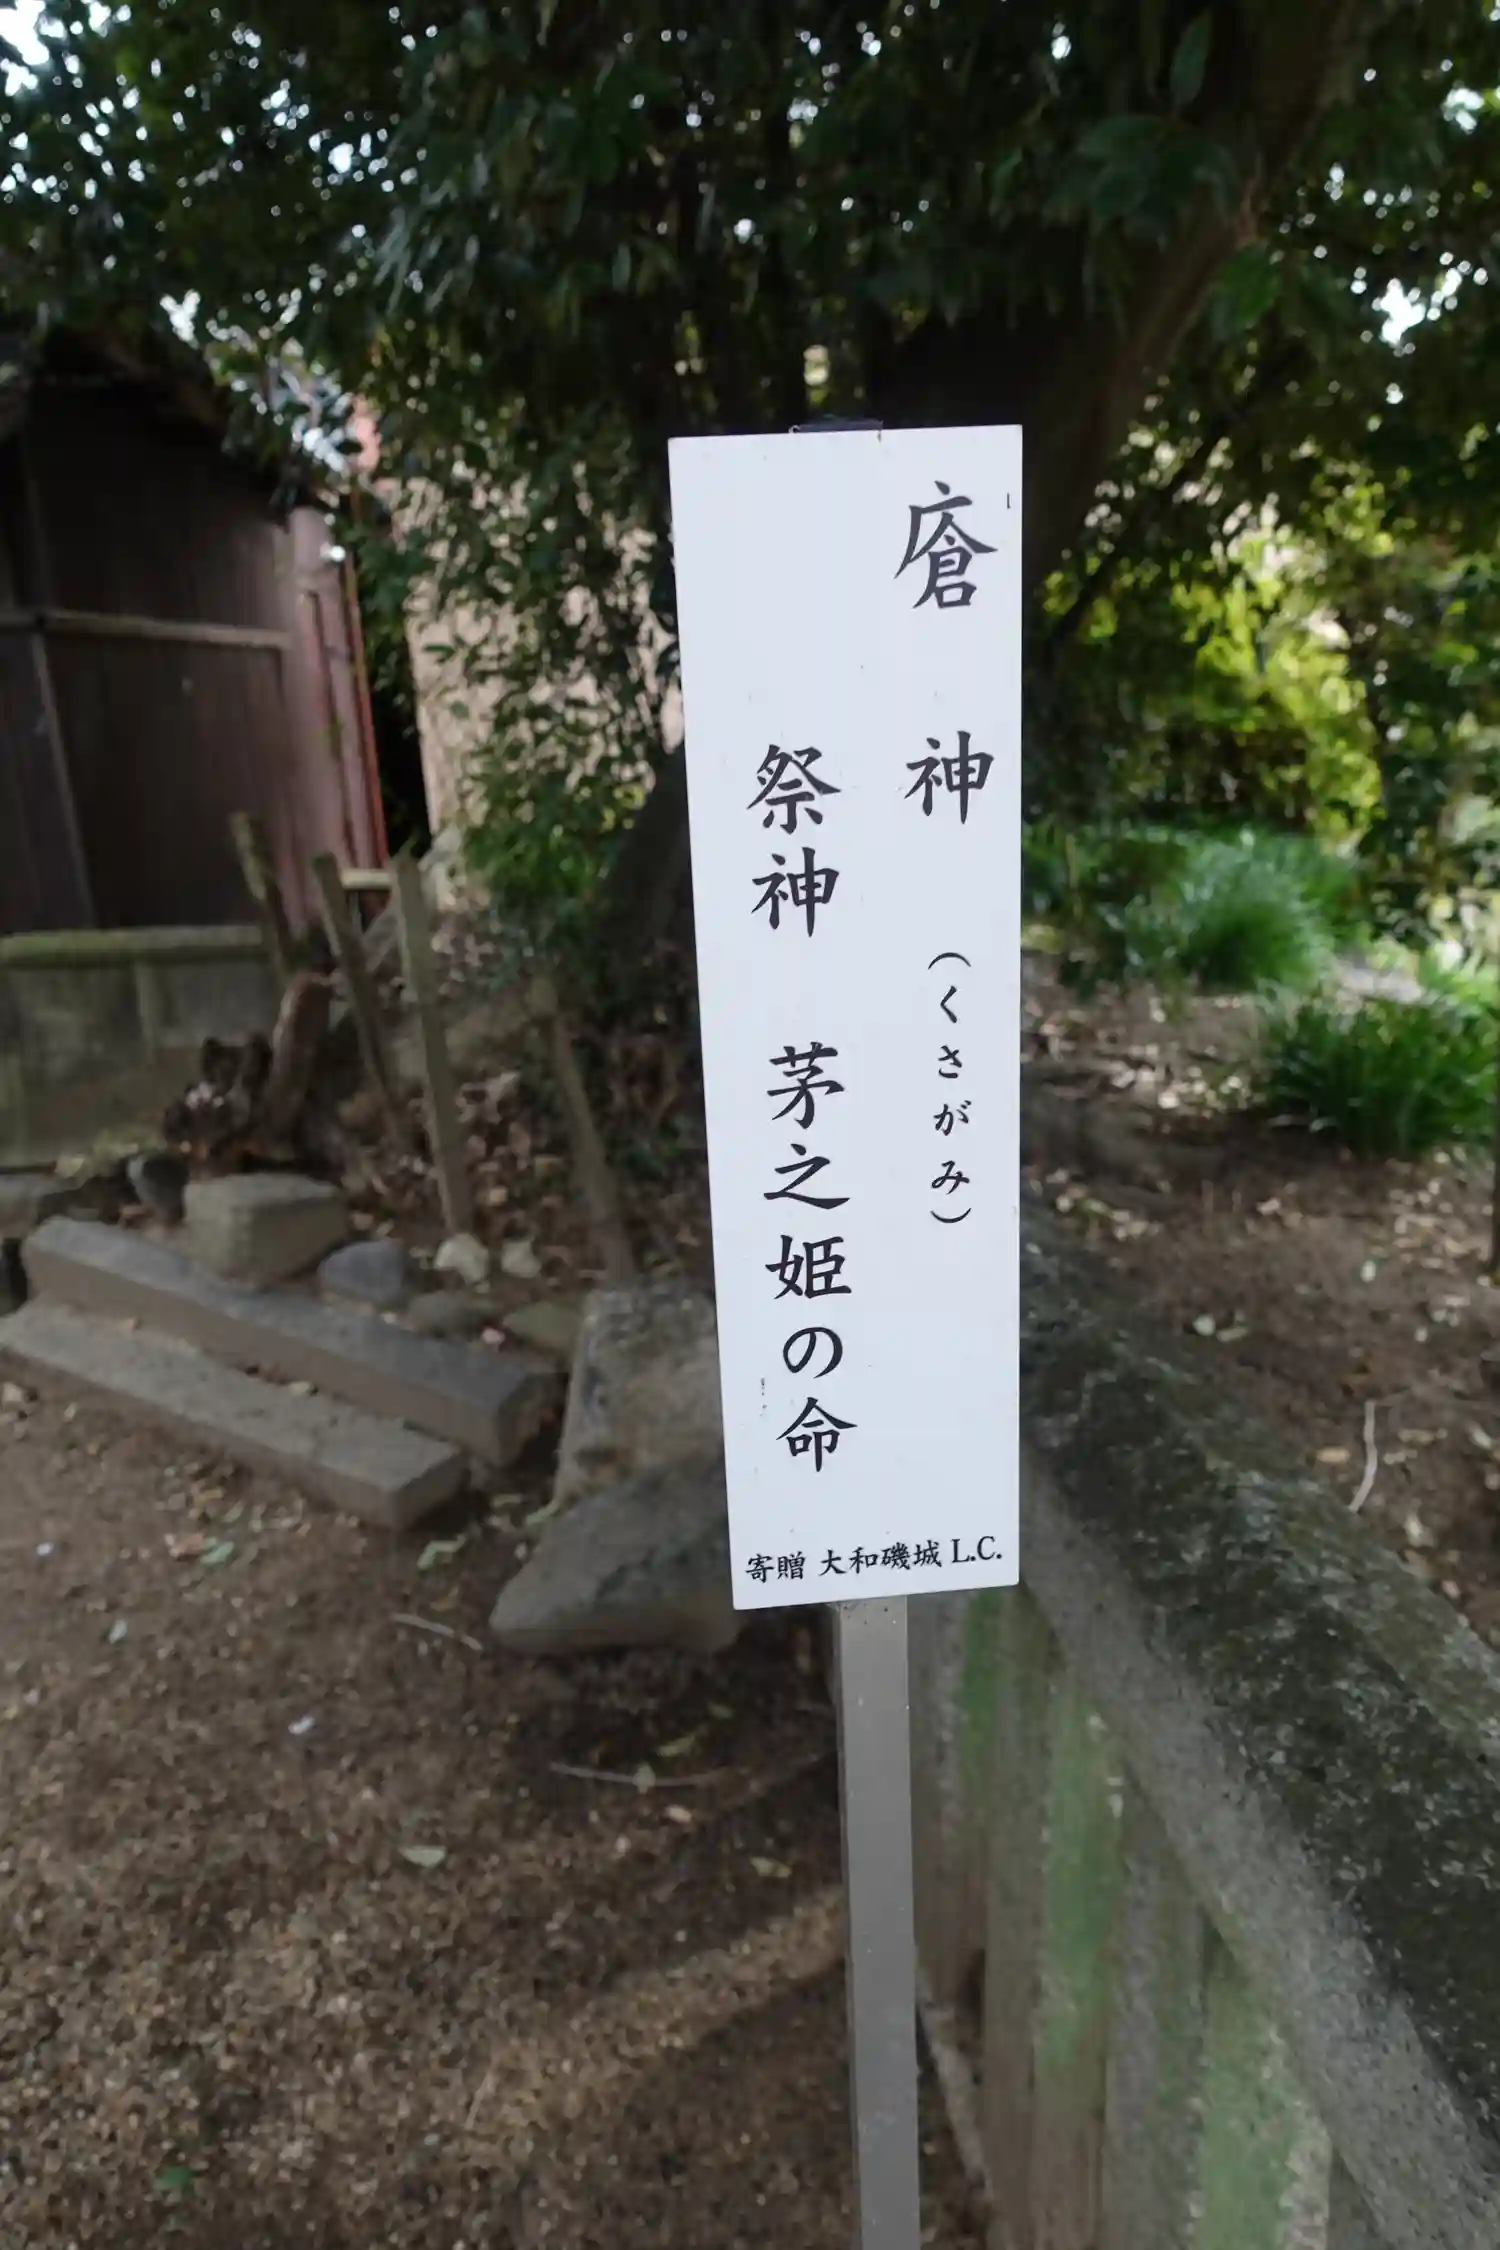 廥神（くさがみ）
祭神 茅之姫の命
寄贈 大和磯城 L.C.